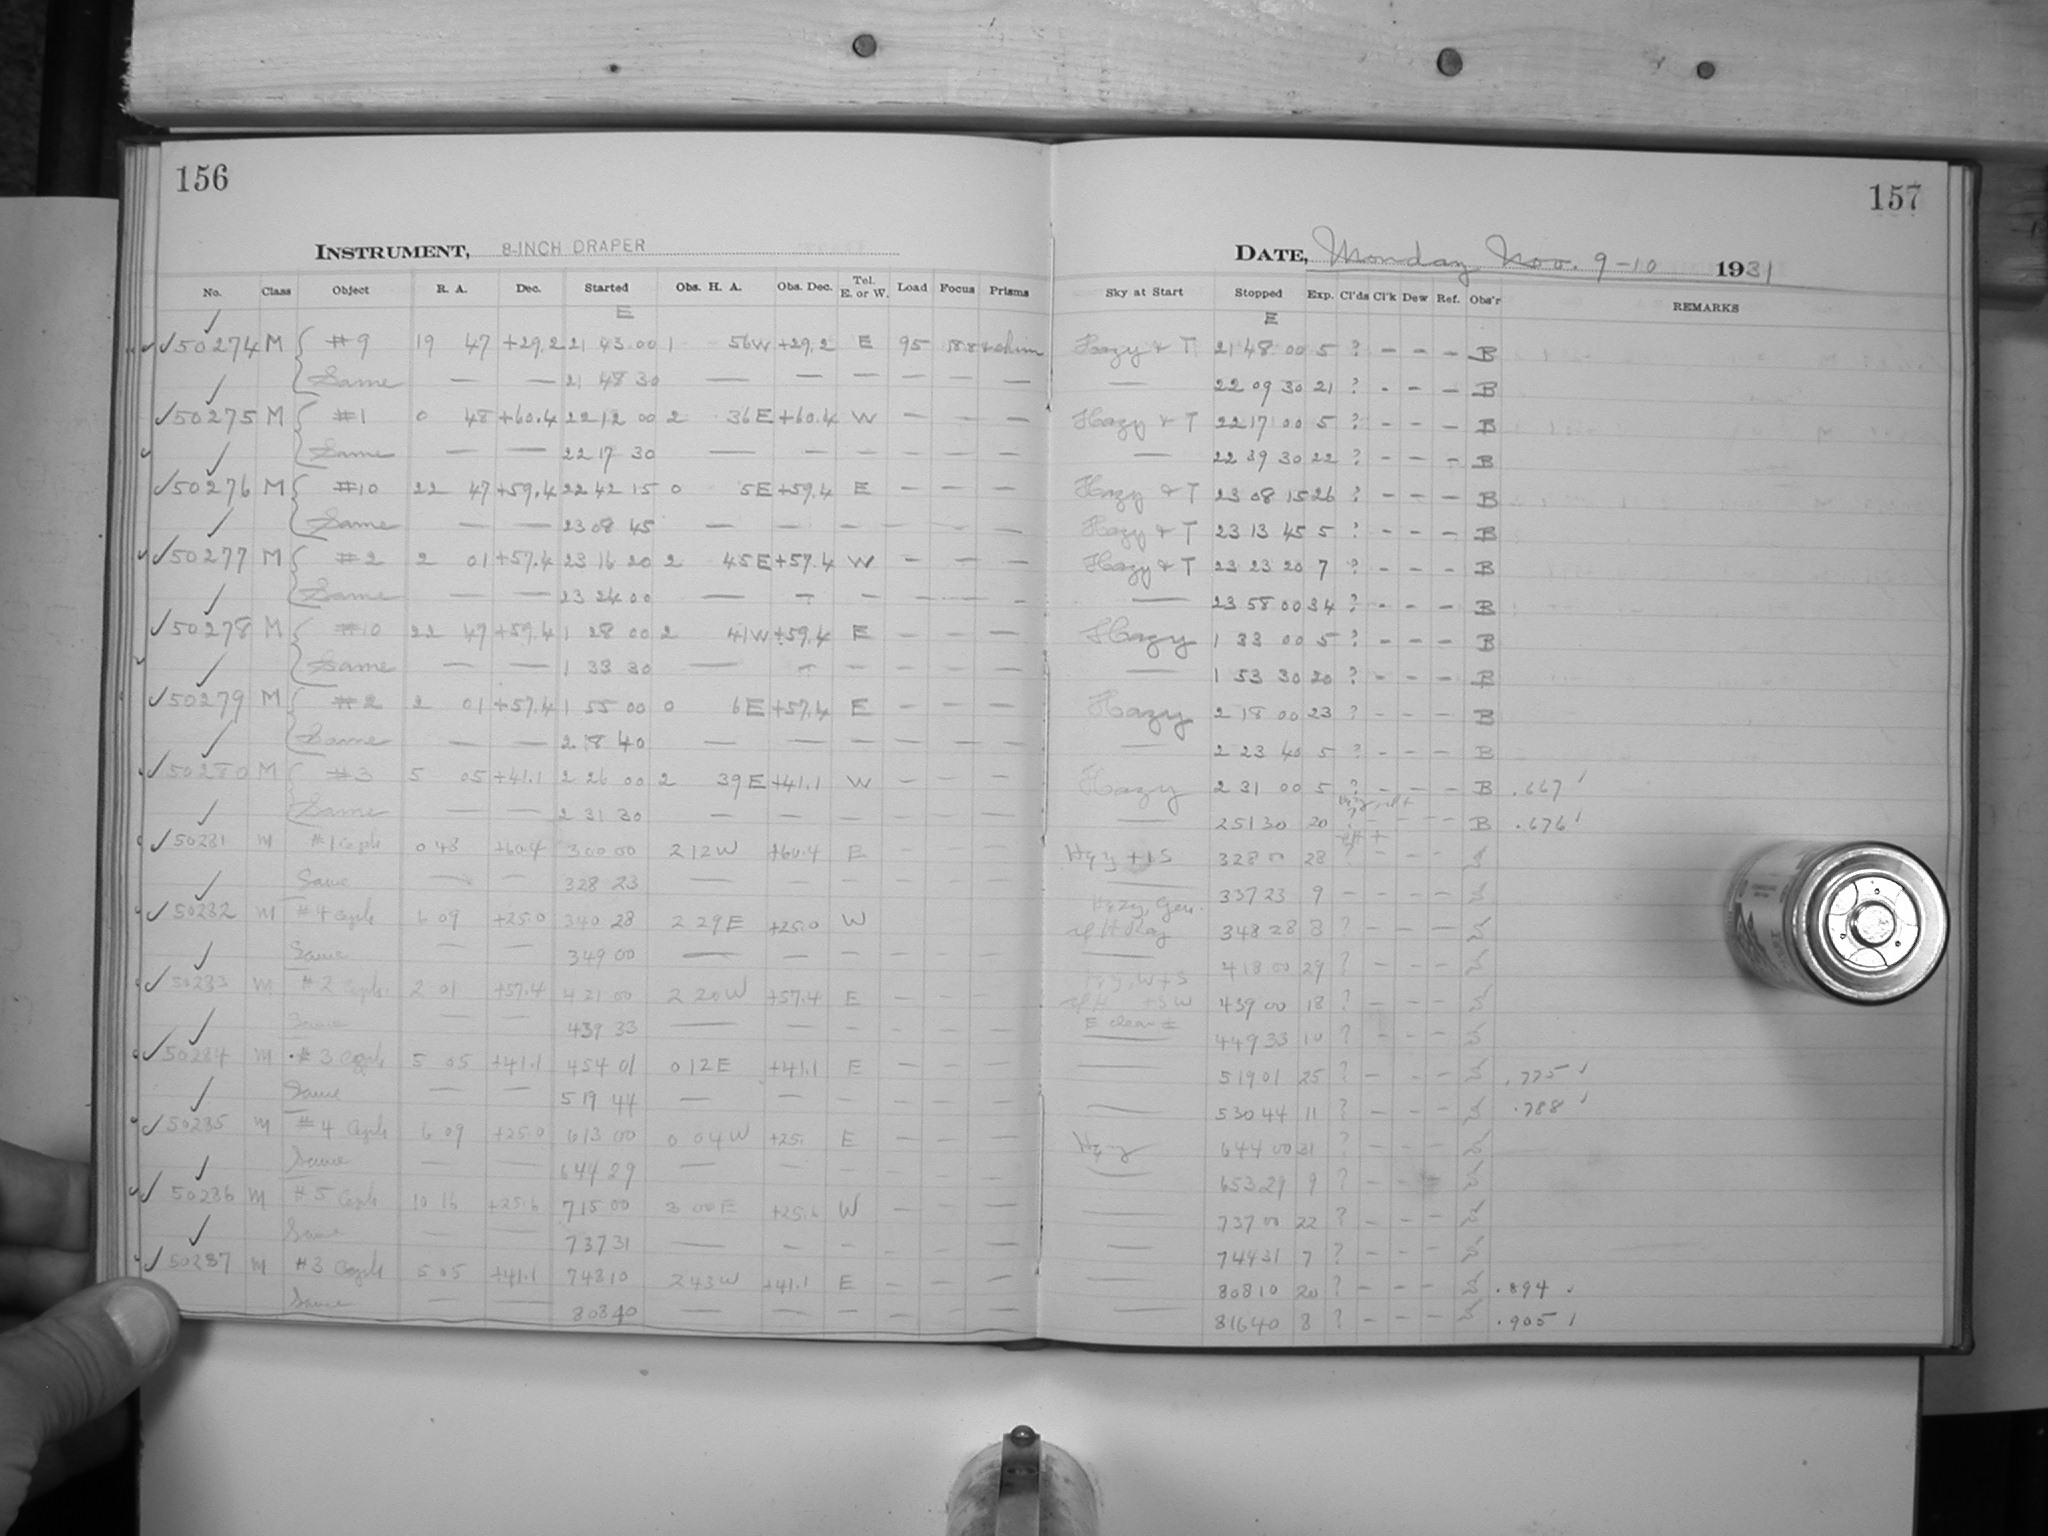 156
157
INSTRUMENT, 8-INCH DRAPER
DATE, Monday Nov. 9-10 1931
No. Class Object R. A. Dec. Started Obs. H. A. Obs. Dec. Tel. E. or W. Load Focus Prisms Sky at Start Stopped Exp. Cl'ds Cl'k Dew Ref. Obs'r REMARKS
E E
✓50274 M #9 19 47 +29.2 21 43 00 1 56W +29.2 E 95 Hazy & T 21 48 00 5 ? - - - B
Same — — 21 48 30 — — — — — — — 22 09 30 21 ? - - - B
✓50275 M #1 0 48 +60.4 22 12 00 2 36E +60.4 W — — — Hazy & T 22 17 00 5 ? - - - B
Same — — 22 17 30 — — — — — — — 22 39 30 22 ? - - - B
✓50276 M #10 22 47 +59.4 22 42 15 0 5E +59.4 E — — — Hazy & T 23 08 15 26 ? - - - B
Same — — 23 08 45 — — — — — — Hazy & T 23 13 45 5 ? - - - B
✓50277 M #2 2 01 +57.4 23 16 20 2 45E +57.4 W — — — Hazy & T 23 23 20 7 ? - - - B
Same — — 23 24 00 — — — — — — — 23 58 00 34 ? - - - B
✓50278 M #10 22 47 +59.4 1 28 00 2 41W +59.4 E — — — Hazy 1 33 00 5 ? - - - B
Same — — 1 33 30 — — — — — — — 1 53 30 20 ? - - - B
✓50279 M #2 2 01 +57.4 1 55 00 0 6E +57.4 E — — — Hazy 2 18 00 23 ? - - - B
Same — — 2 18 40 — — — — — — — 2 23 40 5 ? - - - B
✓50280 M #3 5 05 +41.1 2 26 00 2 39E +41.1 W — — — Hazy 2 31 00 5 ? - - - B .667
Same — — 2 31 30 — — — — — — — 2 51 30 20 ? - - - B .676
✓50281 M #1 0 48 +60.4 3 00 00 2 12W +60.4 E — — — 3 28 00 28 ? - - - S
Same — — 3 28 23 — — — — — — — 3 37 23 9 - - - - S
✓50282 M #4 6 09 +25.0 3 40 28 2 29E +25.0 W Hazy, Gen. 3 48 28 8 ? - - - S
Same — — 3 49 00 — — — — — — — 4 18 00 29 ? - - - S
✓50283 M #2 2 01 +57.4 4 21 00 2 20W +57.4 E — — — 4 39 00 18 ? - - - S
Same — — 4 39 33 — — — — — — E clear 4 49 33 10 ? - - - S
✓50284 M #3 5 05 +41.1 4 54 01 0 12E +41.1 E — — — — 5 19 01 25 ? - - - S .775
Same — — 5 19 44 — — — — — — — 5 30 44 11 ? - - - S .788
✓50285 M #4 6 09 +25.0 6 13 00 0 04W +25. E — — — Hazy 6 44 00 31 ? - - - S
Same — — 6 44 29 — — — — — — — 6 53 29 9 ? - - - S
✓50286 M #5 10 16 +25.6 7 15 00 3 00E +25.6 W — — — — 7 37 00 22 ? - - - S
Same — — 7 37 31 — — — — — — — 7 44 31 7 ? - - - S
✓50287 M #3 5 05 +41.1 7 48 10 2 43W +41.1 E — — — — 8 08 10 20 ? - - - S .894
Same — — 8 08 40 — — — — — — 8 16 40 8 ? - - - S .905